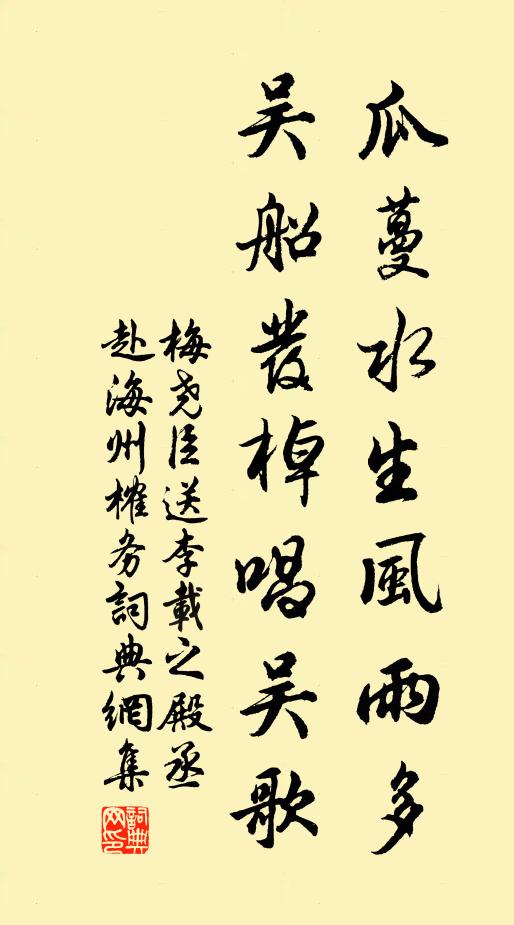 瓜蔓水生風雨多
吳船發棹唱吳歌
梅堯臣送李載之殿丞
赴海州榷务詞典網集
詞典网印